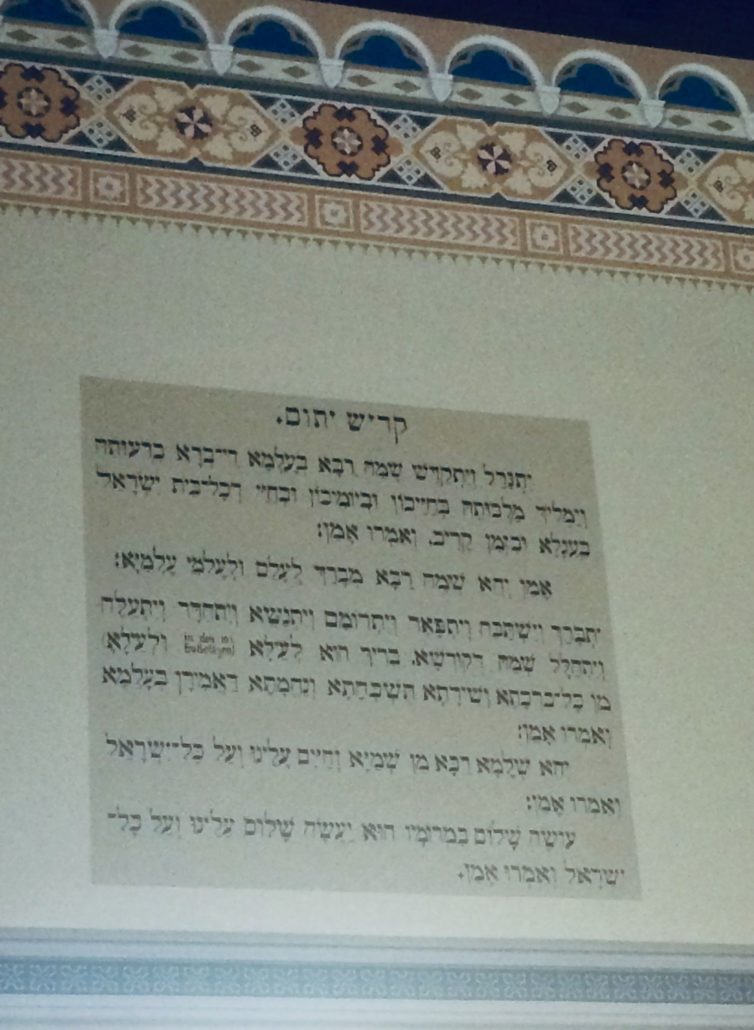 קדיש יתום.
יִתְגַּדַּל וְיִתְקַדַּשׁ שְׁמֵהּ רַבָּא בְּעָלְמָא דִּי־בְרָא כִרְעוּתֵהּ
וְיַמְלִיךְ מַלְכוּתֵהּ בְּחַיֵּיכוֹן וּבְיוֹמֵיכוֹן וּבְחַיֵּי דְכָל־בֵּית יִשְׂרָאֵל
בַּעֲגָלָא וּבִזְמַן קָרִיב. וְאִמְרוּ אָמֵן:
אָמֵן יְהֵא שְׁמֵהּ רַבָּא מְבָרַךְ לְעָלַם וּלְעָלְמֵי עָלְמַיָּא:
יִתְבָּרַךְ וְיִשְׁתַּבַּח וְיִתְפָּאַר וְיִתְרוֹמַם וְיִתְנַשֵּׂא וְיִתְהַדַּר וְיִתְעַלֶּה
וְיִתְהַלָּל שְׁמֵהּ דְּקוּדְשָׁא. בְּרִיךְ הוּא לְעֵילָּא (in den 10 Bußetagen) וּלְעֵילָּא)
מִן כָּל־בִּרְכָתָא וְשִׁירָתָא תֻּשְׁבְּחָתָא וְנֶחָמָתָא דַּאֲמִירָן בְּעָלְמָא
וְאִמְרוּ אָמֵן:
יְהֵא שְׁלָמָא רַבָּא מִן שְׁמַיָּא וְחַיִּים עָלֵינוּ וְעַל כָּל־יִשְׂרָאֵל
וְאִמְרוּ אָמֵן:
עוֹשֶׂה שָׁלוֹם בִּמְרוֹמָיו הוּא יַעֲשֶׂה שָׁלוֹם עָלֵינוּ וְעַל כָּל־
יִשְׂרָאֵל וְאִמְרוּ אָמֵן.